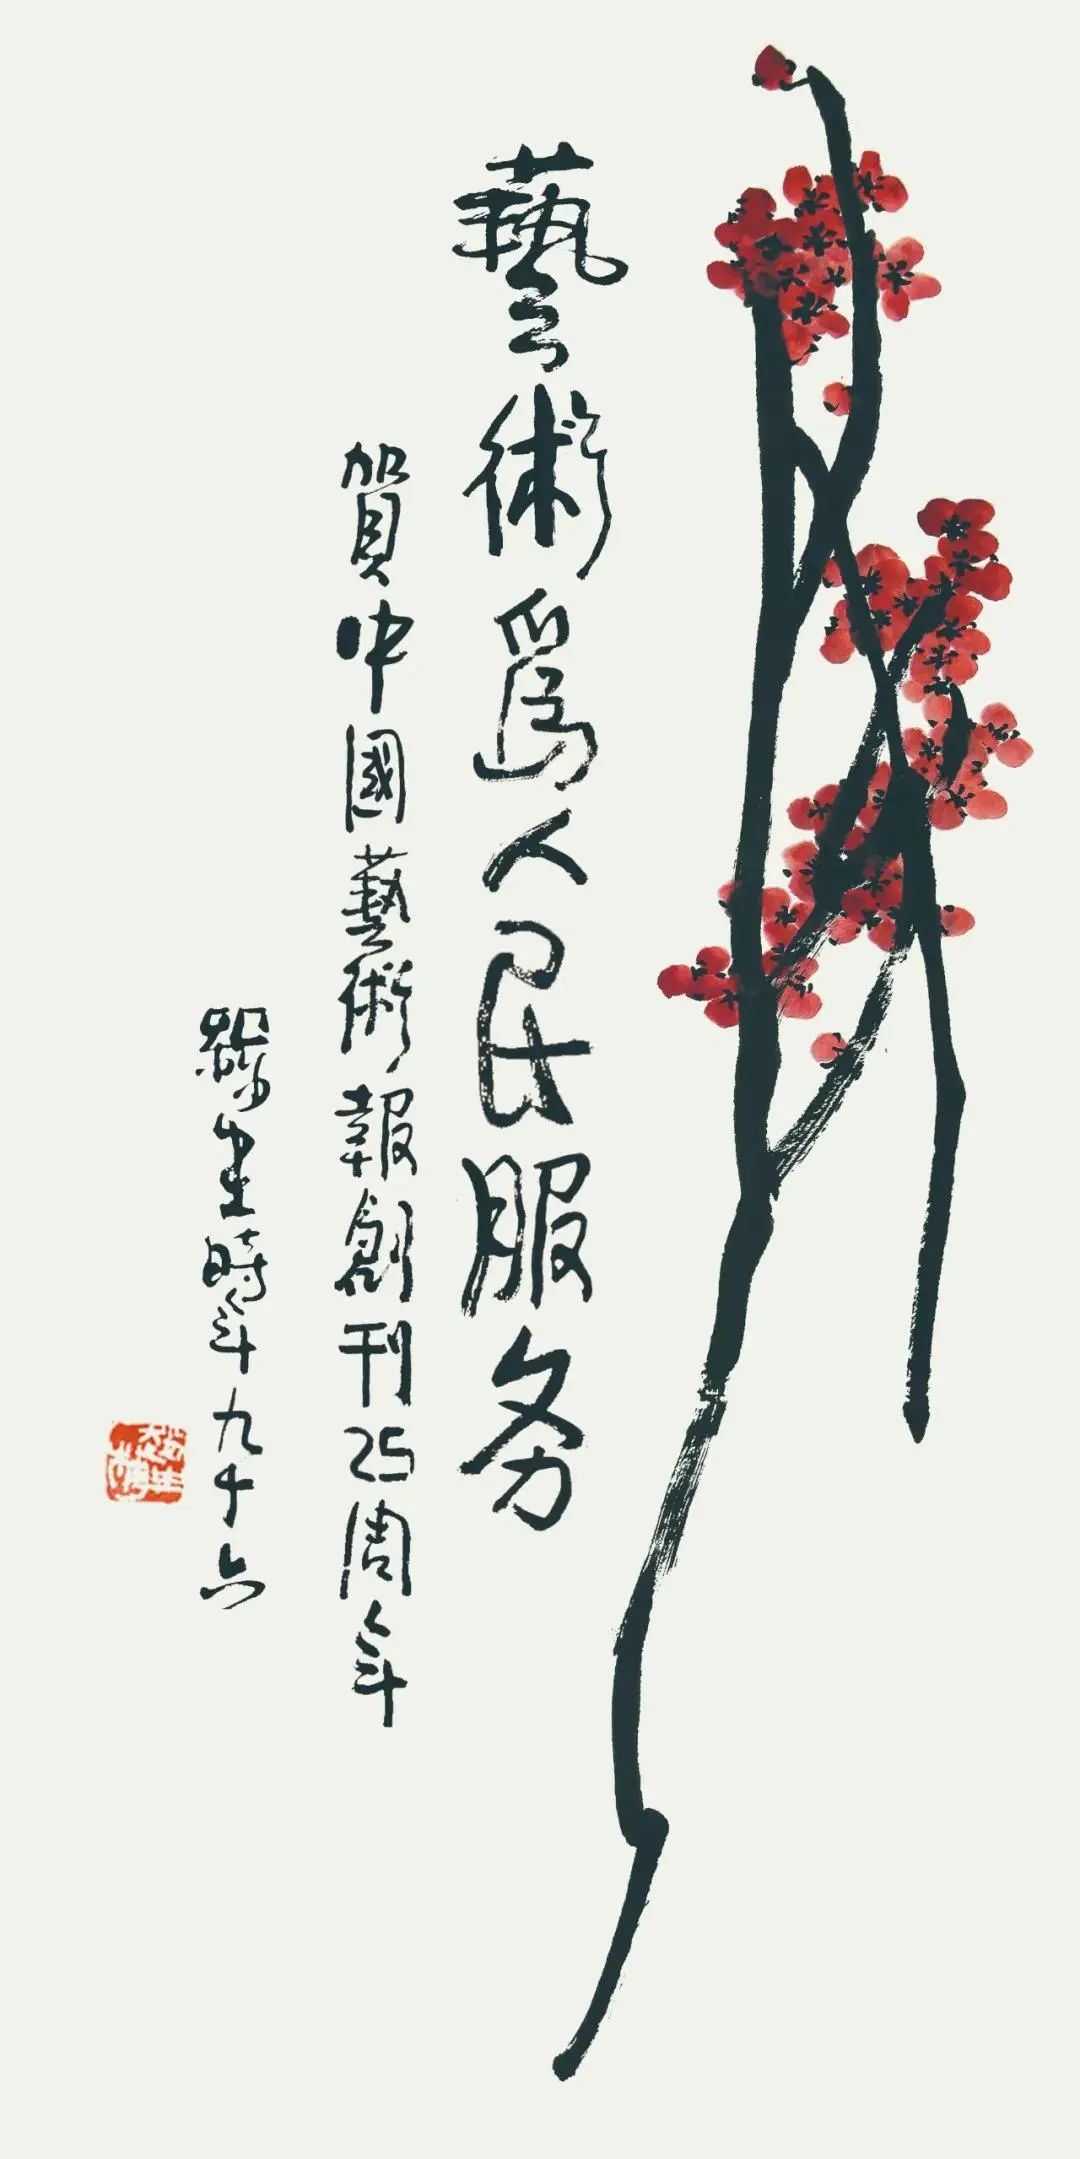 藝術爲人民服务
賀中國藝術報創刊25周年
槑生時年九十六